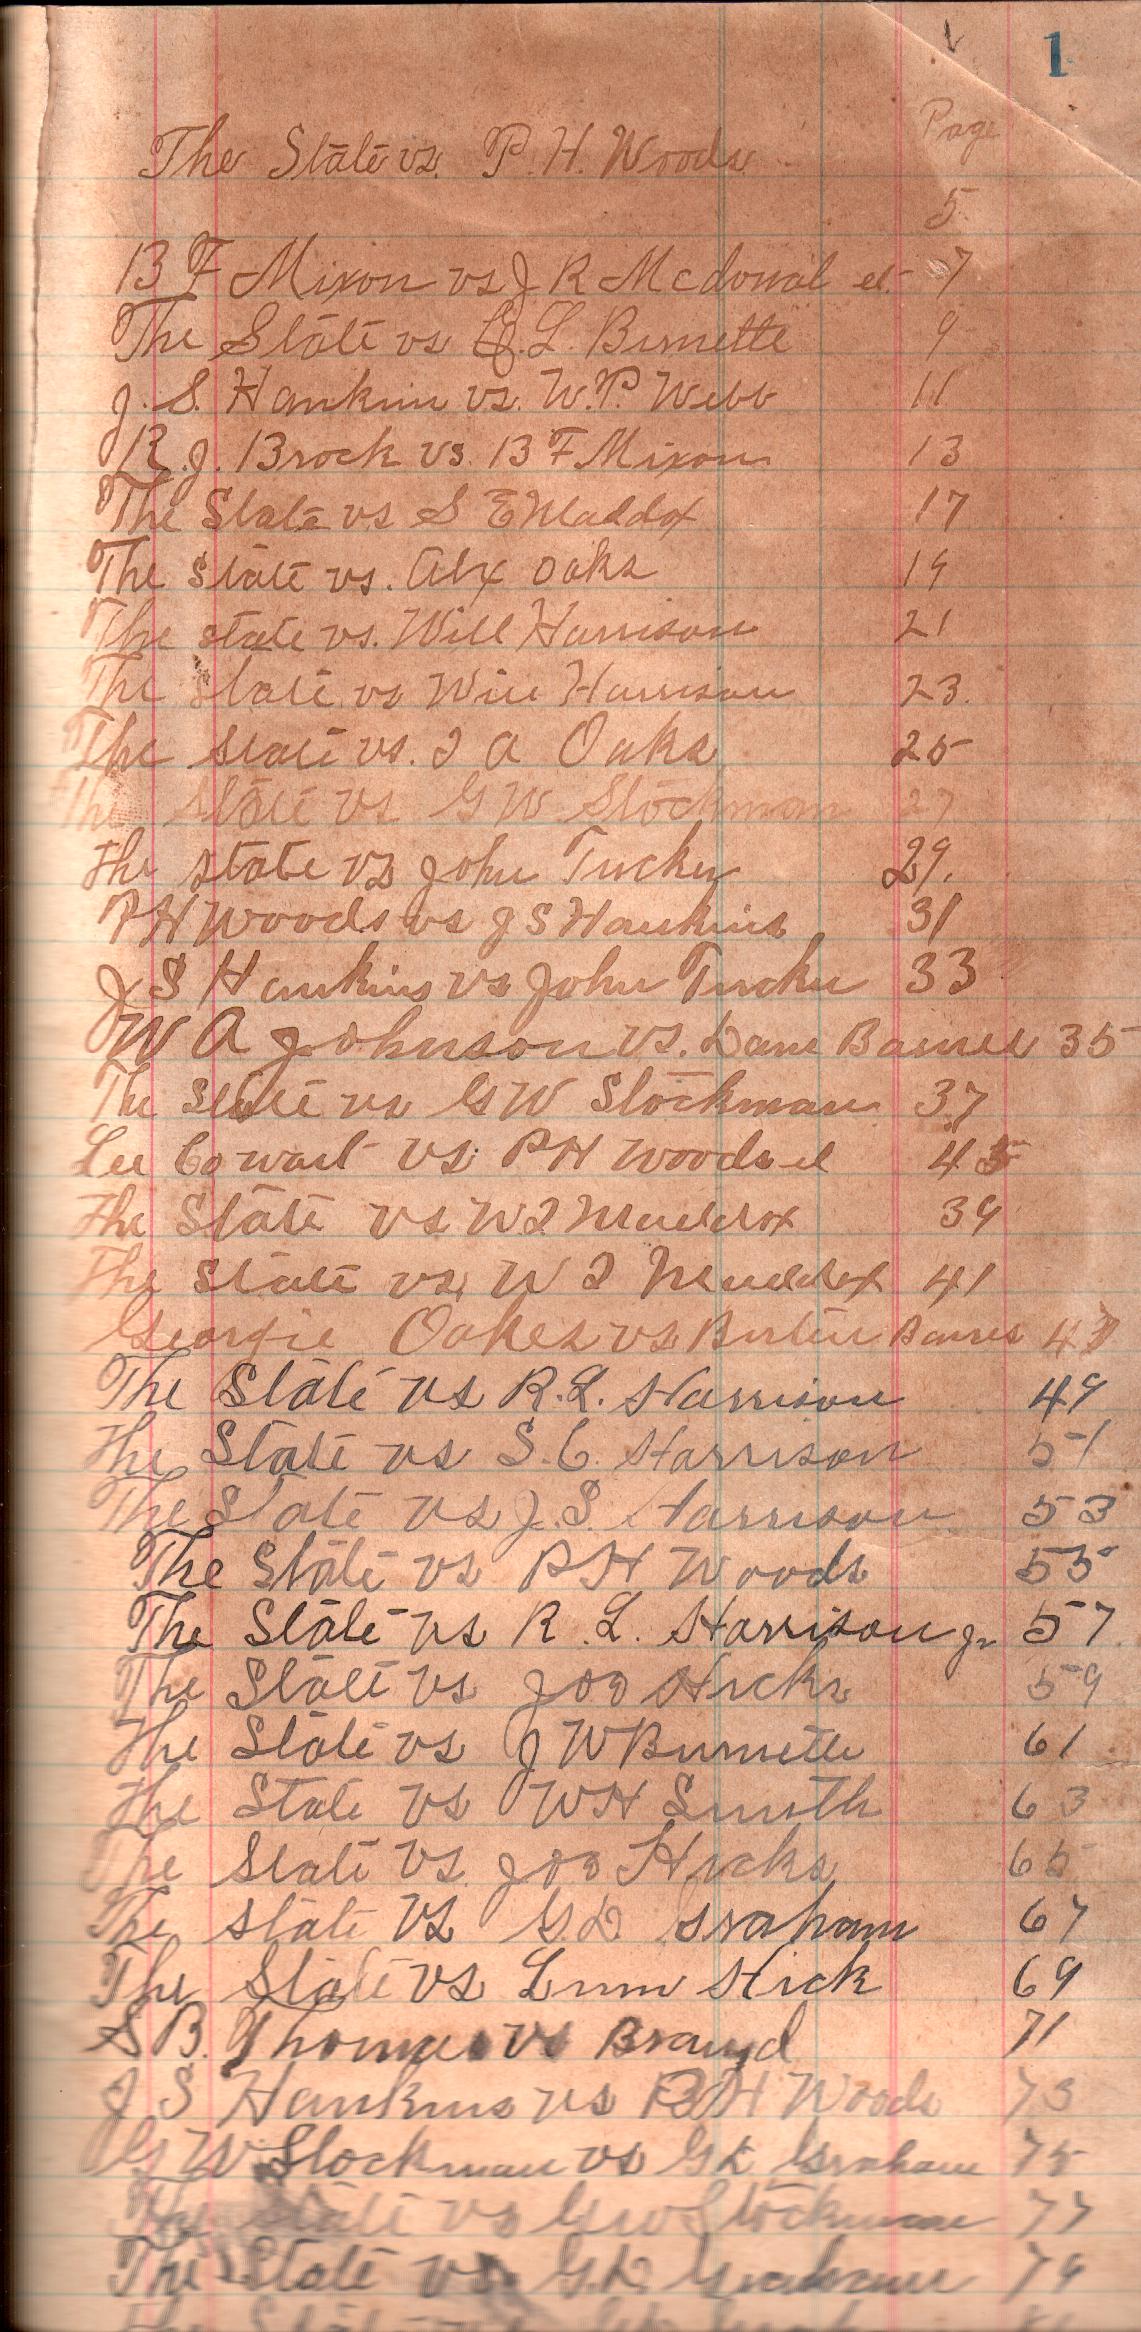 1
Page
The State vs. P. H. Woods
5
B F Mixon vs J R Mcdonal et. 7
The State vs L. Burnette 9
J. S. Hankins vs. W. P. Webb 11
R. J. Brock vs. B F Mixon 13
The State vs S E Maddox 17
The State vs. Alx Oaks 19
The State vs. Will Harrison 21
The State vs Will Harrison 23
The State vs. I A Oaks 25
The State vs G W Stockman 27
The State vs John Tucker 29.
P H Woods vs J S Hankins 31
J S Hankins vs John Tucker 33
W A Johnson vs. Dave Barnes 35
The State vs G W Stockman 37
Lee Cowart vs P H Woods et 45
The State vs W I Maddox 39
The State vs W I Maddox 41
Georgie Oakes vs Barnes 47
The State vs R. L. Harrison 49
The State vs S. C. Harrison 51
The State vs J. S. Harrison 53
The State vs P H Woods 55
The State vs R. L. Harrison Jr 57
The State vs Joe Hicks 59
The State vs J W Burnette 61
The State vs W H Smith 63
The State vs Joe Hicks 65
The State vs G. L. Graham 67
The State vs Hick 69
S B. Thomas vs 71
J S Hankins vs P H Woods 73
G W Stockman vs G L Graham 75
The State vs G W Stockman 77
The State vs G. L. Graham 79
The State vs